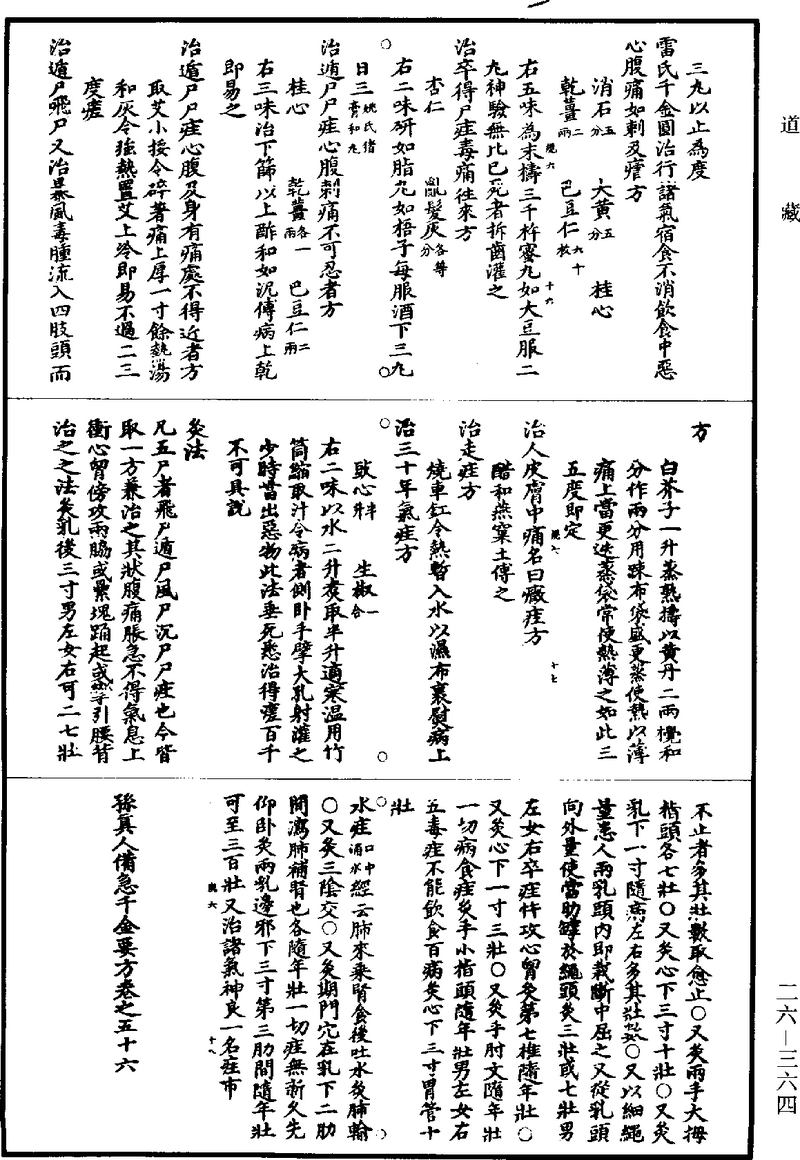 道藏
三丸以止為度
雷氏千金圓治行諸氣宿食不消飲食中惡
心腹痛如刺及瘧方
消石五分 大黃五分 桂心
乾薑二兩 巴豆仁六十枚
右五味為末擣三千杵蜜丸如大豆服二
丸神驗無比已死者折齒灌之
治卒得尸疰毒痛往來方
杏仁 亂髮灰各等分
右二味研如脂丸如梧子每服酒下三丸
日三姚氏猪膏和丸
治遁尸尸疰心腹刺痛不可忍者方
桂心 乾薑各一兩 巴豆仁二兩
右三味治下篩以上酢和如泥傅病上乾
即易之
治遁尸尸疰心腹及身有痛處不得近者方
取艾小挼令碎著痛上厚一寸餘熱湯
和灰令強熱置艾上冷即易不過二三
度瘥
治遁尸飛尸又治暴風毒腫流入四肢頭而
方
白芥子一升蒸熟擣以黃丹二兩攪和
分作兩分用踈布袋盛更蒸使熱以薄
痛上當更迭蒸袋常使熱薄之如此三
五度即定
治人皮膚中痛名曰癥疰方
醋和燕窠土傅之
治走疰方
燒車釭令熱暫入水以濕布裹熨病上
治三十年氣疰方
豉心半升 生椒一合
右二味以水二升煑取半升適寒溫用竹
筒縮取汁令病者側卧手擘大孔射灌之
少時當出惡物此法垂死悉治得瘥百千
不可具說
灸法
凡五尸者飛尸遁尸風尸沉尸尸疰也今皆
取一方兼治之其狀腹痛脹急不得氣息上
衝心胷傍攻兩脇或纍塊踊起或攣引腰背
治之之法灸乳後三寸男左女右可二七壯
不止者多其壯數取愈止○又灸兩手大拇
指頭各七壯○又灸心下三寸十壯○又灸
乳下一寸隨病左右多其壯數○又以細繩
量患人兩乳頭內即裁斷中屈之又從乳頭
向外量使當肋罅於繩頭灸三壯或七壯男
左女右卒疰忤攻心胷灸第七椎隨年壯○
又灸心下一寸三壯○又灸手肘文隨年壯
一切病食疰灸手小指頭隨年壯男左女右
五毒疰不能飲食百病灸心下三寸胃管十
壯
水疰口中涌水經云肺來乘腎食後吐水灸肺輸
○又灸三陰交○又灸期門穴在乳下二肋
間瀉肺補腎也各隨年壯一切疰無新久先
仰卧灸兩乳邊邪下三寸第三肋間隨年壯
可至三百壯又治諸氣神良一名疰市
孫真人備急千金要方卷之五十六
二六—三六四